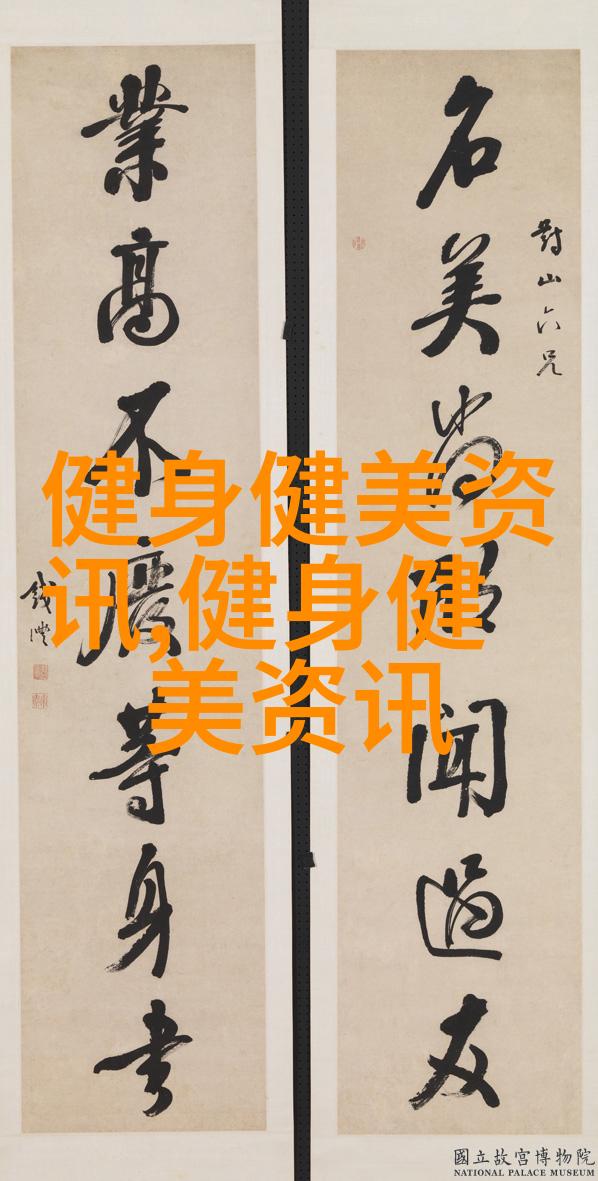 對山六兄
名美尚欣聞過友
業高不廢等身書
錢灃
健身健美资
讯,健身健
美资讯
國立故宮博物院
NATIONAL PALACE MUSEUM